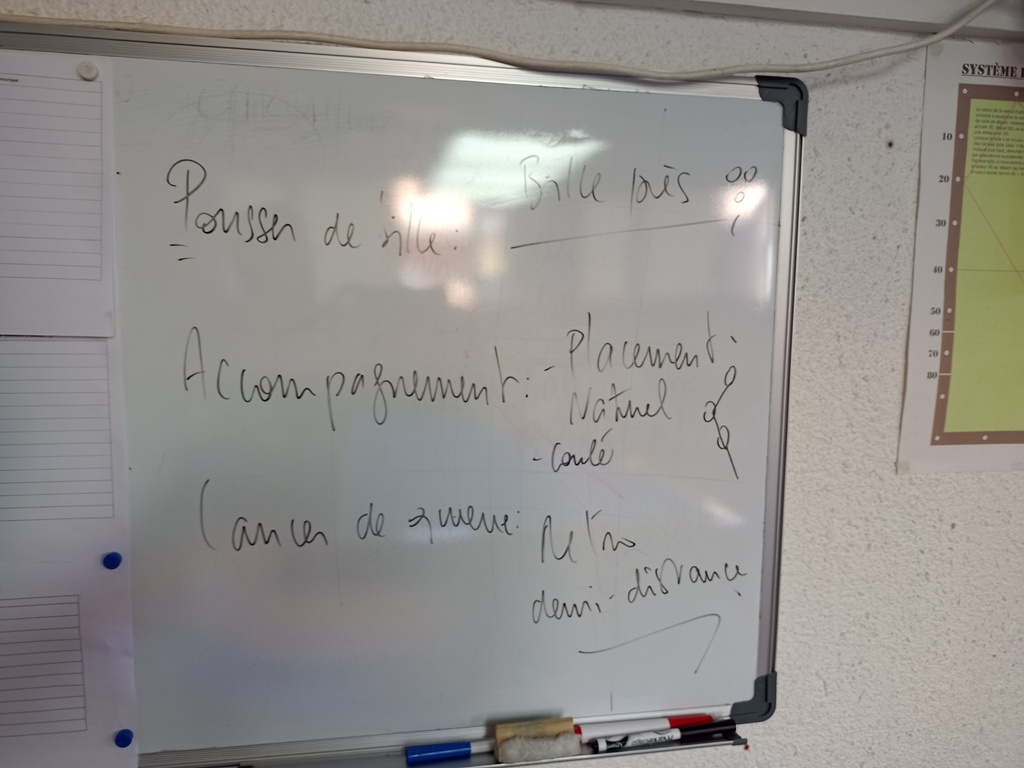 Pousser de bille: Bille près
Accompagnement: - Placement.
Naturel
- coulé
Lancer de queue: Rétro
demi-distance
SYSTÈME
10
20
30
40
50
60
70
80